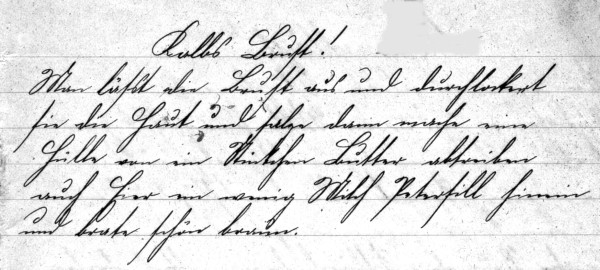 Kalbs Brust!
Man läßt die Brust aus und durchlockert
sie die Haut und salze dann mache eine
Fülle von ein Stückchen Butter abtreiben
auch Eier ein wenig Milch Petersill hinein
und brate schön braun.